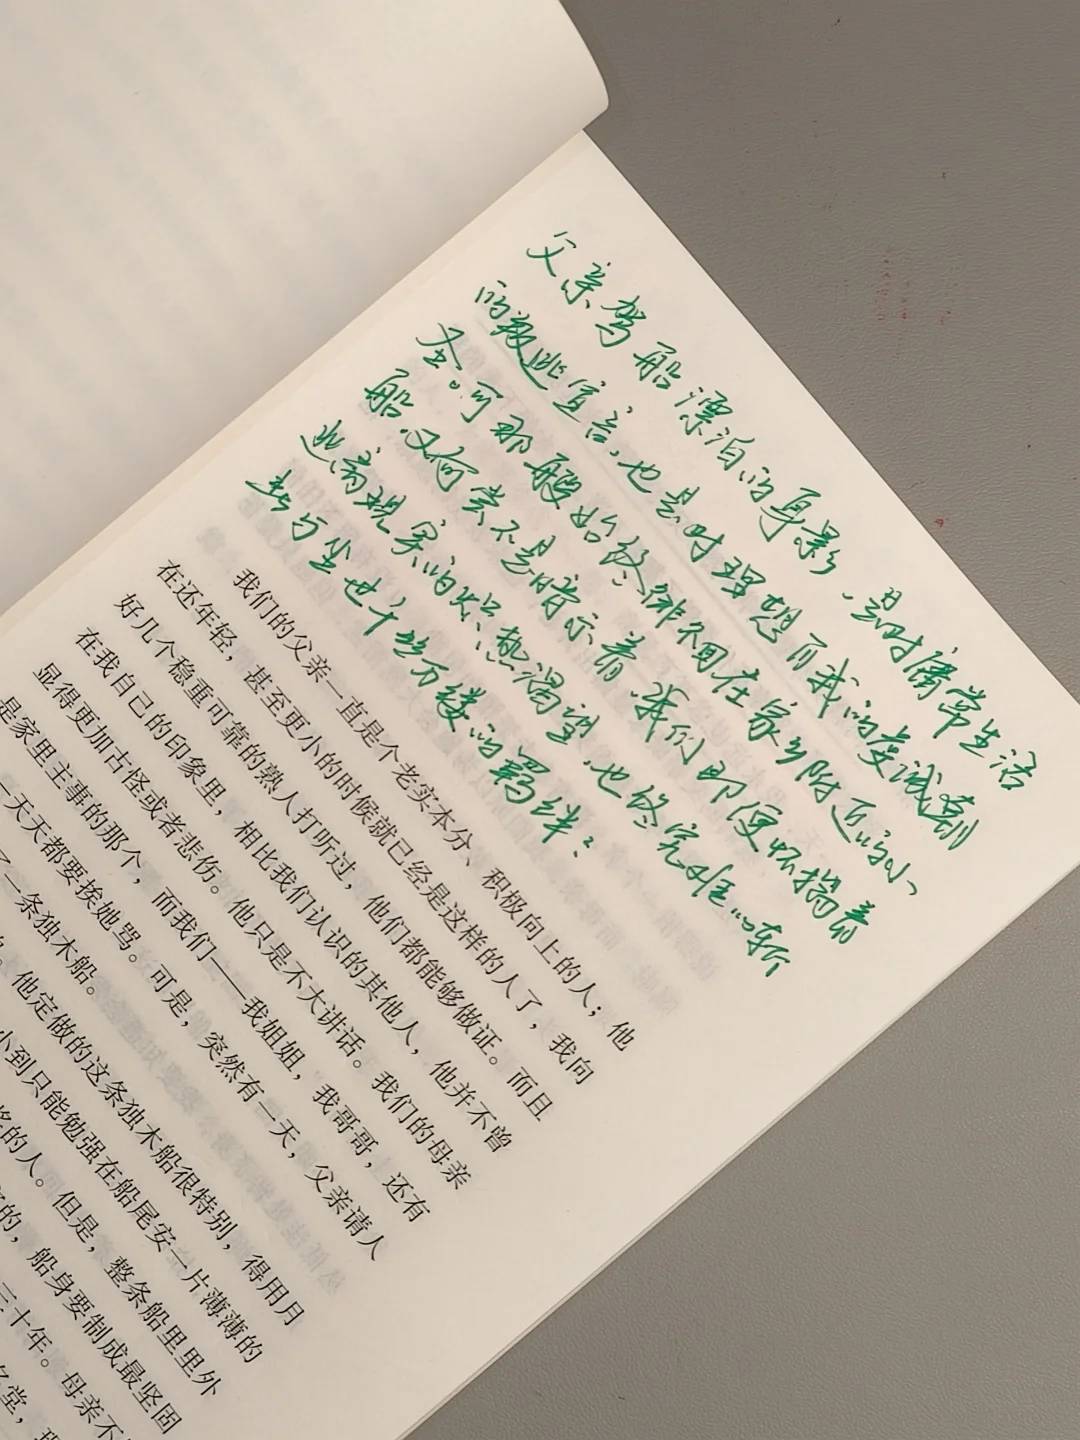 父亲驾船漂泊的身影，是对庸常生活
的叛逃宣言，也是对理想自我的虔诚篆刻
圣。可那艘始终徘徊在家乡附近的小
船，又何尝不是暗示着，我们即便怀揣着
逃离现实的炽热渴望，也终究难以斩
断与尘世千丝万缕的羁绊？
我们的父亲一直是个老实本分、积极向上的人；他
在还年轻，甚至更小的时候就已经是这样的人了，我向
好几个稳重可靠的熟人打听过，他们都能够做证。而且
在我自己的印象里，相比我们认识的其他人，他并不曾
显得更加古怪或者悲伤。他只是不大讲话。我们的母亲
是家里主事的那个，而我们——我姐姐，我哥哥，还有
一天天都要挨她骂。可是，突然有一天，父亲请人
了一条独木船。
他定做的这条独木船很特别，得用月
小到只能勉强在船尾安一片薄薄的
的人。但是，整条船里里外
的，船身要制成最坚固
三十年。母亲不
堂，